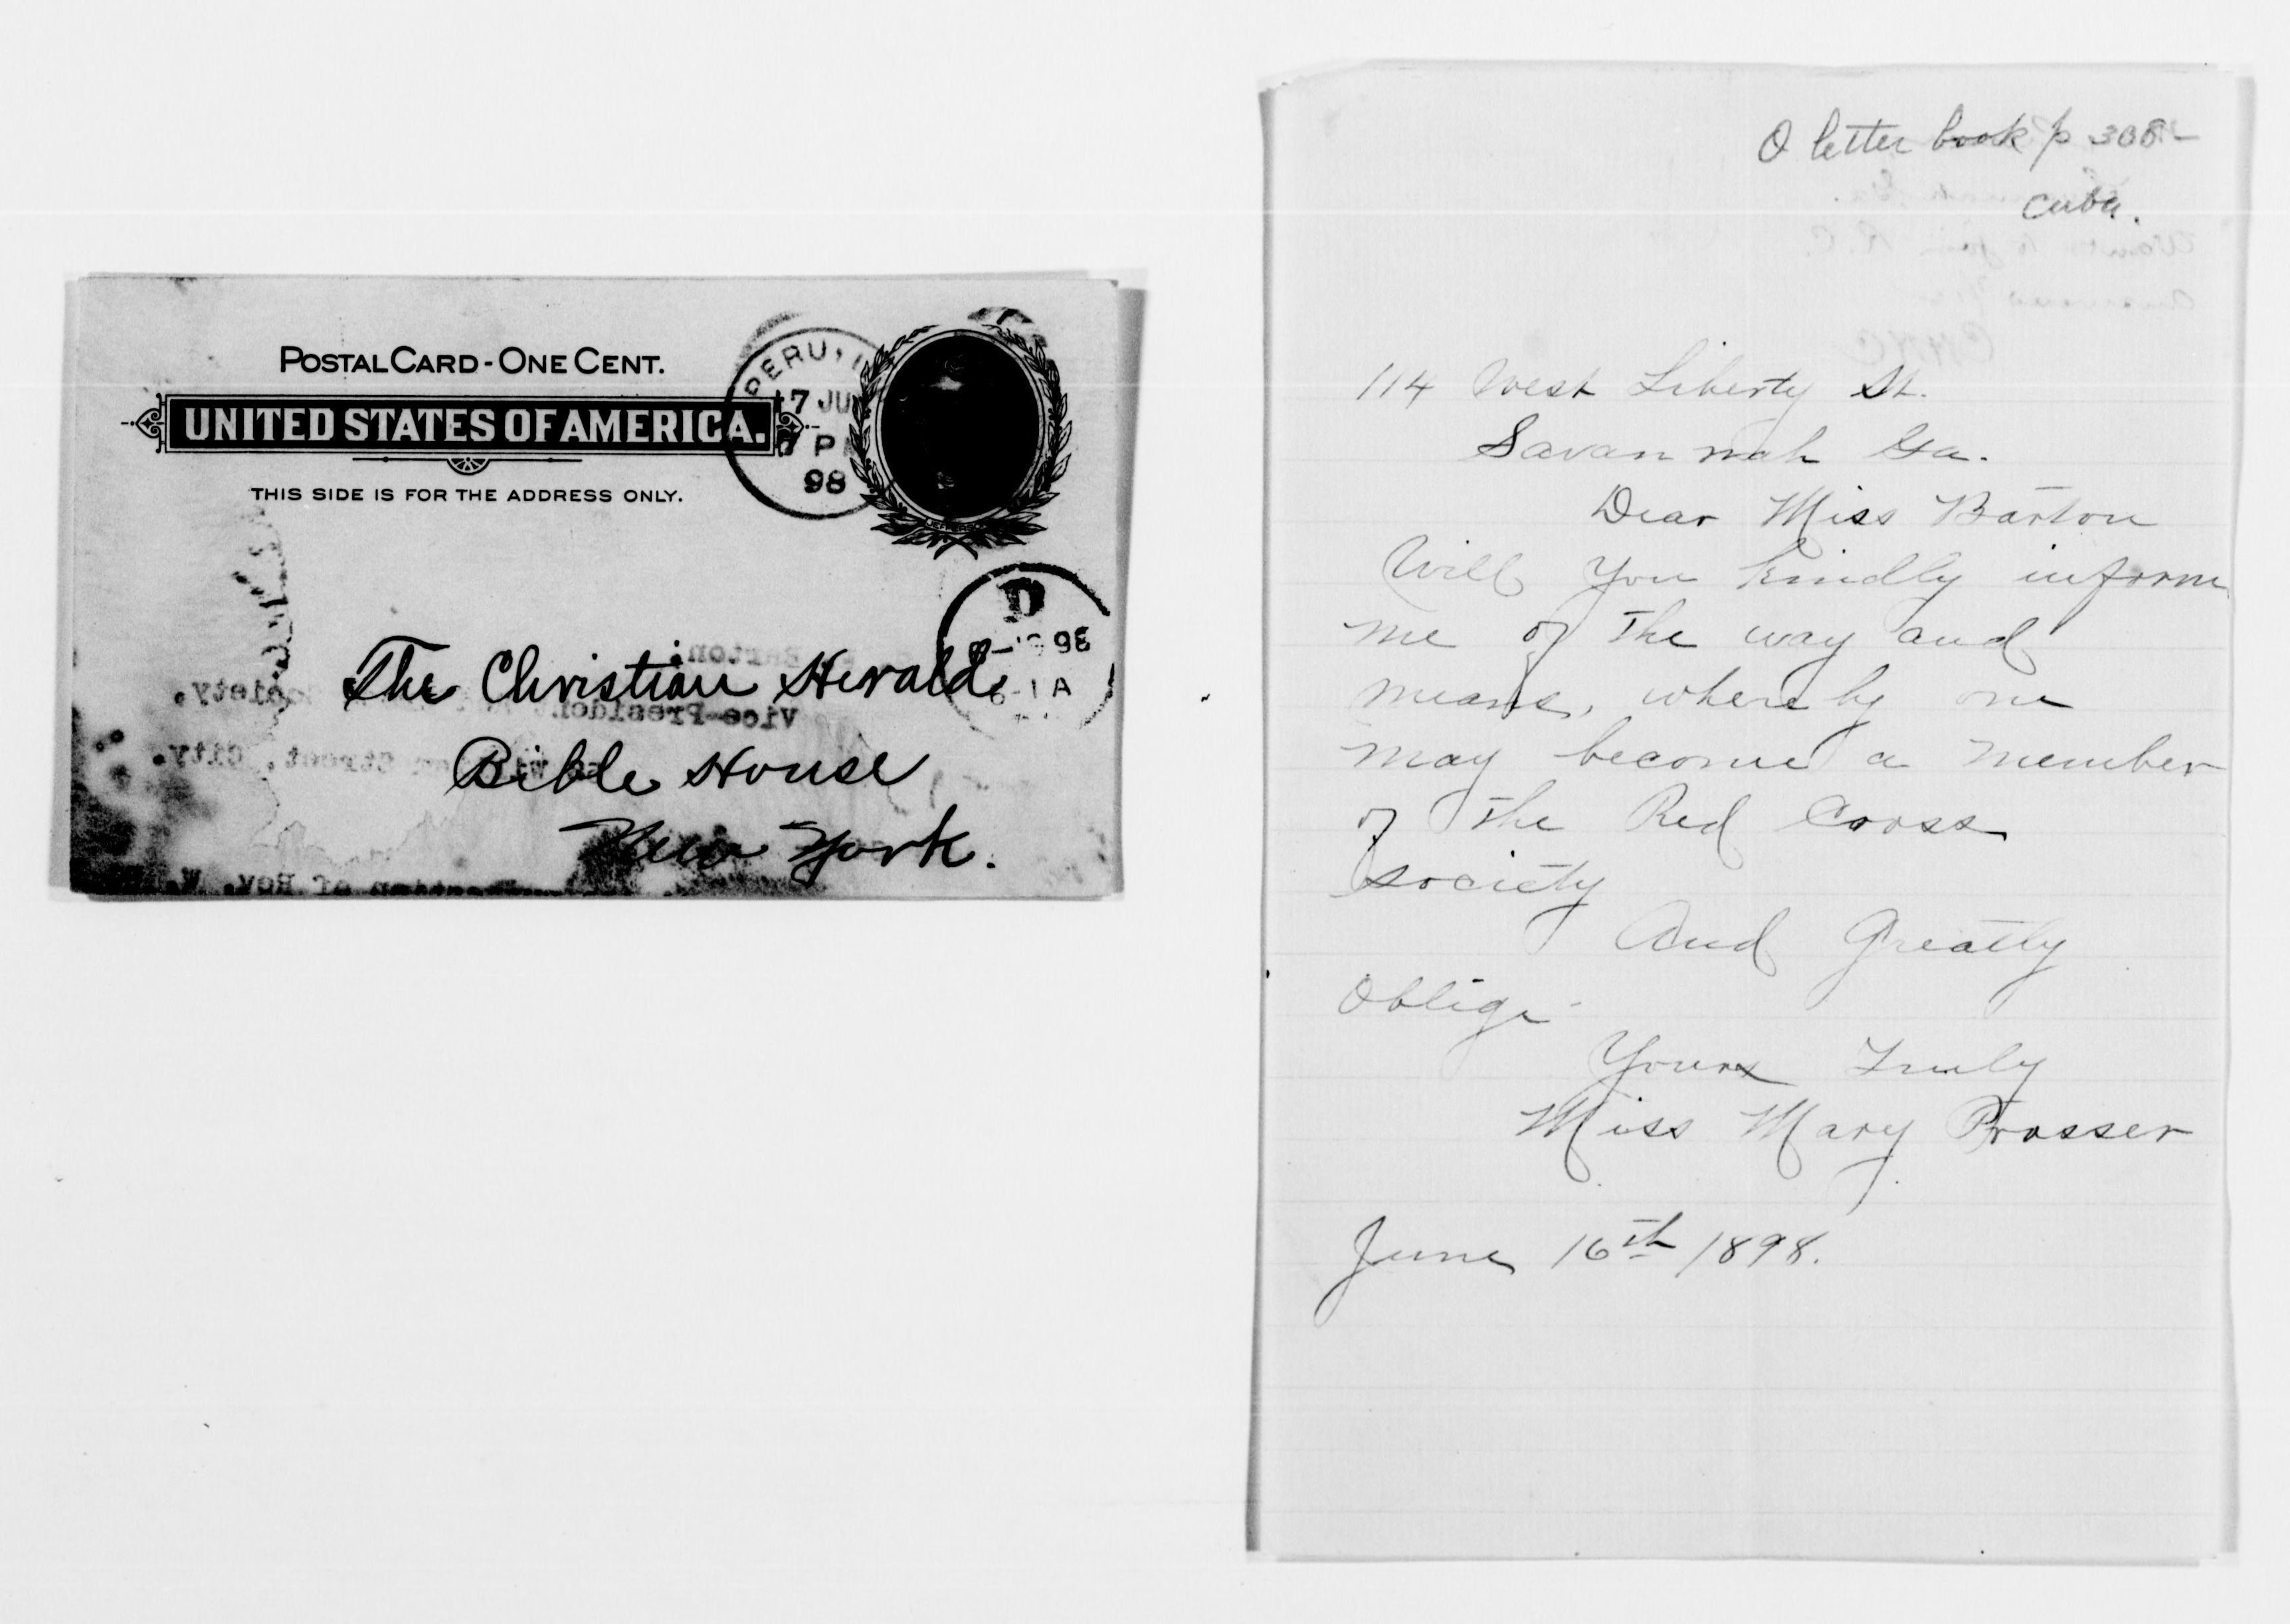 POSTAL CARD - ONE CENT.
UNITED STATES OF AMERICA.
THIS SIDE IS FOR THE ADDRESS ONLY.
PERU, I
17 JU
98
D
98
1 A
The Christian Herald,
Bible House
New York.
O letter book p 308
Cuba.
114 West Liberty St.
Savannah Ga.
Dear Miss Barton
Will you kindly inform
me of the way and
means, whereby one
may become a member
of the Red Cross
society
And Greatly
Oblige
Yours Truly
Miss Mary Prosser
June 16th 1898.